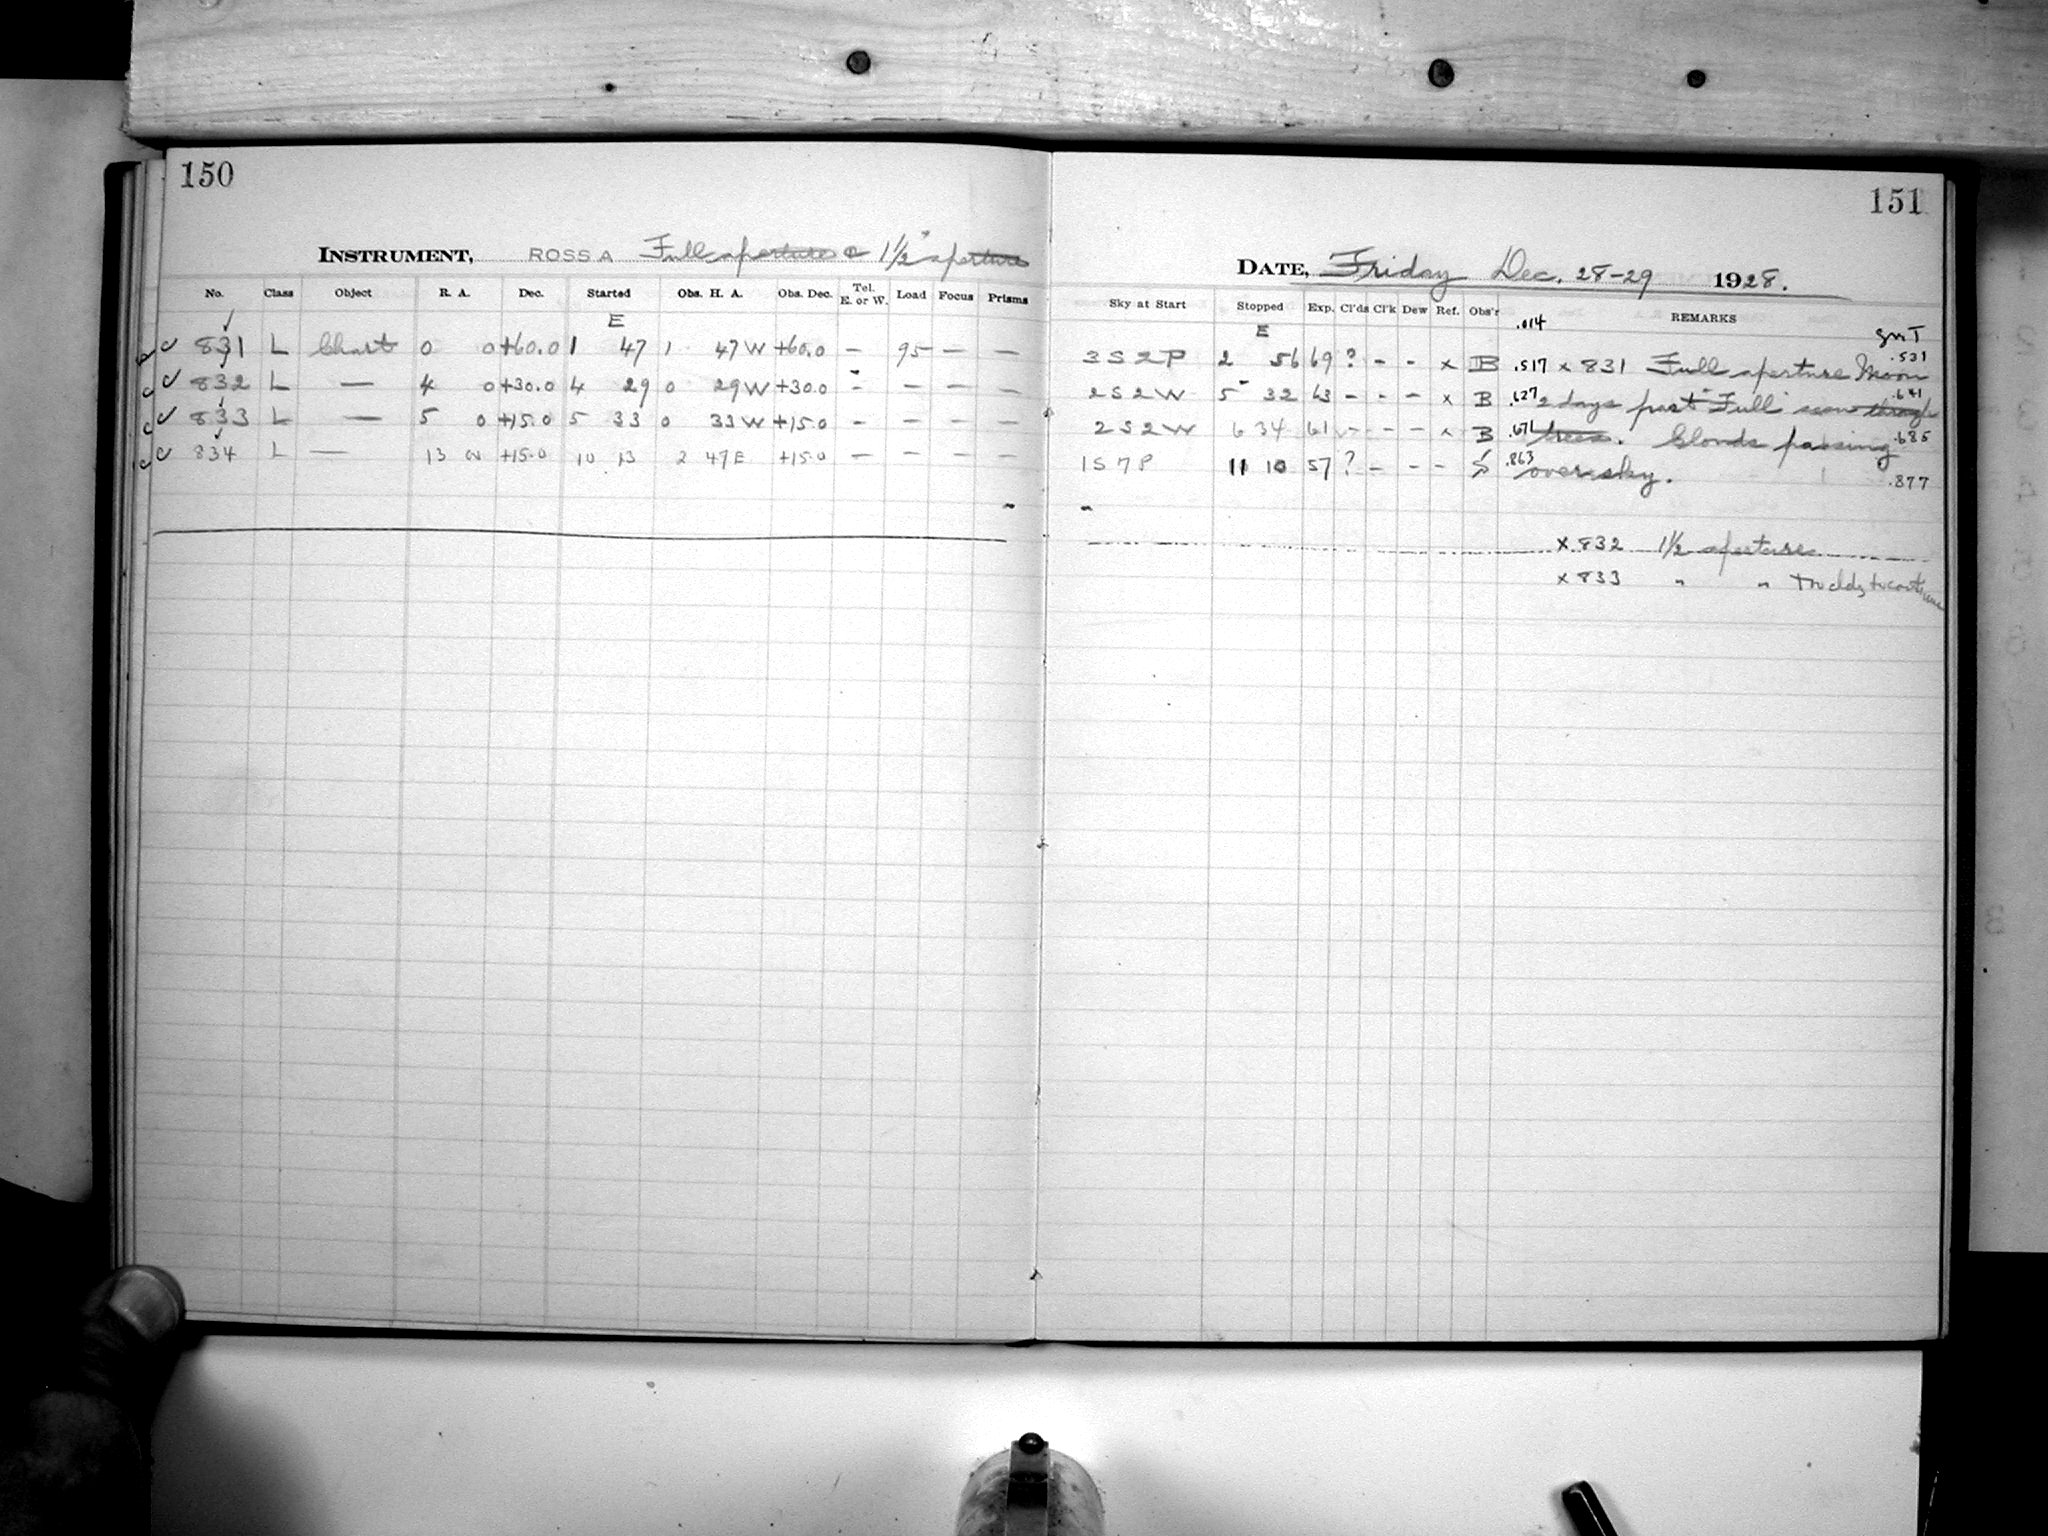 150
INSTRUMENT, ROSS A Full aperture & 1½" aperture
No. Class Object R. A. Dec. Started Obs. H. A. Obs. Dec. Tel. E. or W. Load Focus Prisms
E
831 L Chart 0 0 +60.0 1 47 1 47 W +60.0 – 95 – –
832 L — 4 0 +30.0 4 29 0 29 W +30.0 – – – –
833 L — 5 0 +15.0 5 33 0 33 W +15.0 – – – –
834 L — 13 0 +15.0 10 13 2 47 E +15.0 – – – –
151
DATE, Friday Dec. 28-29 1928.
Sky at Start Stopped Exp. Cl'ds Cl'k Dew Ref. Obs'r REMARKS
E .014 GMT
3 S 2 P 2 56 69 ? – – x B .517 x 831 Full aperture Moon .531
2 S 2 W 5 32 63 – – – x B .627 2 days past Full seen through .641
2 S 2 W 6 34 61 – – – x B .671 trees. Clouds passing .685
1 S 7 P 11 10 57 ? – – – S .863 over sky. .877
x 832 1½ aperture
x 833 " "